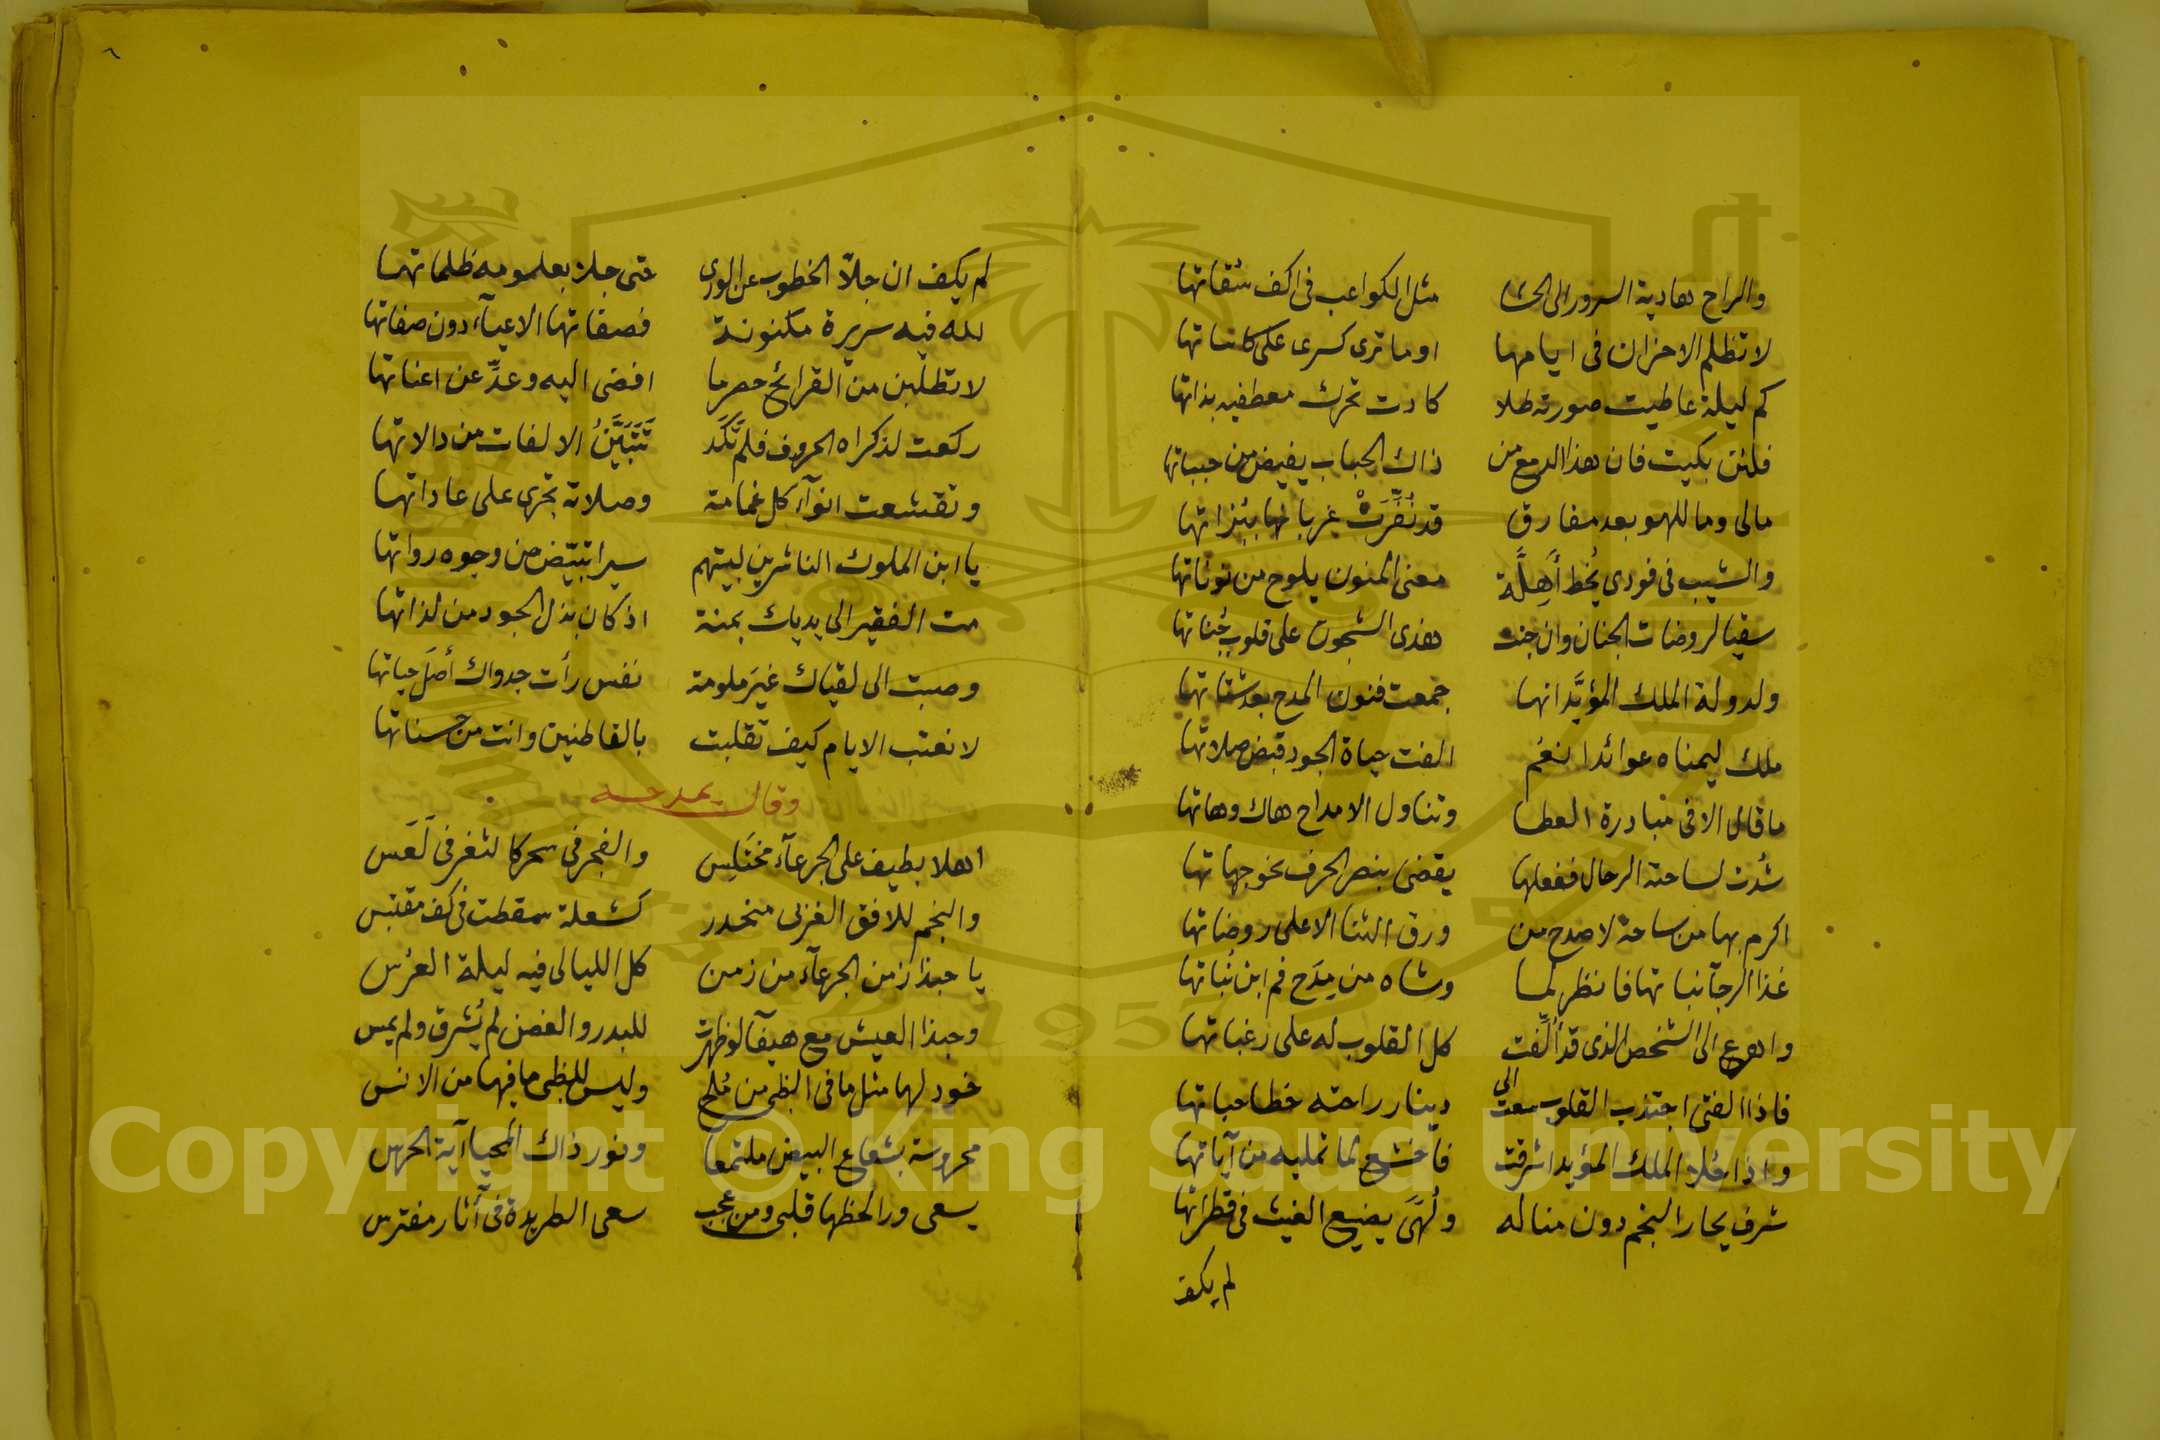 والراح هادية السرور الى الحشا مثل الكواعب فى اكف سقاتها
لا تظلم الاحزان فى ايامها اوما ترى كسرى على كاساتها
كم ليلة عاطيت صورته طلا كادت تحرك معطفيه بذاتها
فلئن بكيت فان هذا الدمع من ذاك الحباب يفيض من جنباتها
مالى وما للهو بعد مفارق قد نُفِّرَتْ غربانها ببُزاتها
والشيب فى فودى يُخط أَهِلَّة معنى المنون يلوح من نوناتها
سقيا لروضات الجنان وان جنت هذى الشجون على قلوب جُناتها
ولدولة الملك المؤيَّد انها جمعت فنون المدح بعد شتاتها
ملك ليمناه عوائد انعُم الفت حياة الجود قبض صلاتها
ما قال الا فى مبادرة العطا وتناول الامداح هاك وهاتها
شُدت لساحته الرحال ففعلها يقضى بنصر الحرف نحو جهاتها
اكرم بها من ساحة لا صدح من ورق الثنا الا على روضاتها
غذا الرجآ نباتها فانظر لما وشاه من مِدَح فم ابن نُباتها
وادع الى الشخص الذى قد أُلِّفت كل القلوب له على رغباتها
فاذا الفتى اجتذب القلوب سعت الى دينار راحته خطا حباتها
واذا علا الملك المؤيد اشرقت فاخشع لما تمليه من آياتها
شرف يحار النجم دون مناله ولُهًى يضيع الغيث فى قطراتها
لم يكف
٦
لم يكف ان جلّا الخطوب عن الورى حتى جلا بعلومه ظلماتها
لله فيه سريرة مكنونة فصفاتها الاعيآء دون صفاتها
لا تطلبن من القرائح حصر ما افضى اليه وعدِّ عن اعناتها
ركعت لذكراه الحروف فلم تَكَد تَتَبَيَّنُ الالفات من دالاتها
وتقشعت انوآء كل غمامة وصلاته تجرى على عاداتها
يا ابن الملوك الناشرين لبيتهم سيرا تبيّض من وجوه رواتها
مت الفقير الى يديك بمنة اذ كان بذل الجود من لذاتها
وصبت الى لقياك غيرَ ملومة نفس رأت جدواك أصلَ حياتها
لا نعتب الايام كيف تقلبت بالقاطنين وانت من حسناتها
وقال يمدحه
اهلا بطيف على الجرعآء مختَلِس والفجر فى سحر كالثغر فى لَعَس
والنجم للافق الغربى منحدر كشعلة سقطت فى كف مقتبس
يا حبذا زمن الجرعآء من زمن كل الليالى فيه ليلة العرُس
وحبذا العيش مع هيفآ لو ظهرت للبدر والغصن لم يُشرق ولم يمس
خود لها مثل ما فى الظبى من مُلَح وليس للظبى ما فيها من الانس
محروسة بشعاع البيض ملتمعا ونور ذاك المحيا آية الحرس
يسعى ورا لحظها قلبى ومن عجب سعى الطريدة فى آثار مفترس
Copyright © King Saud University
1957